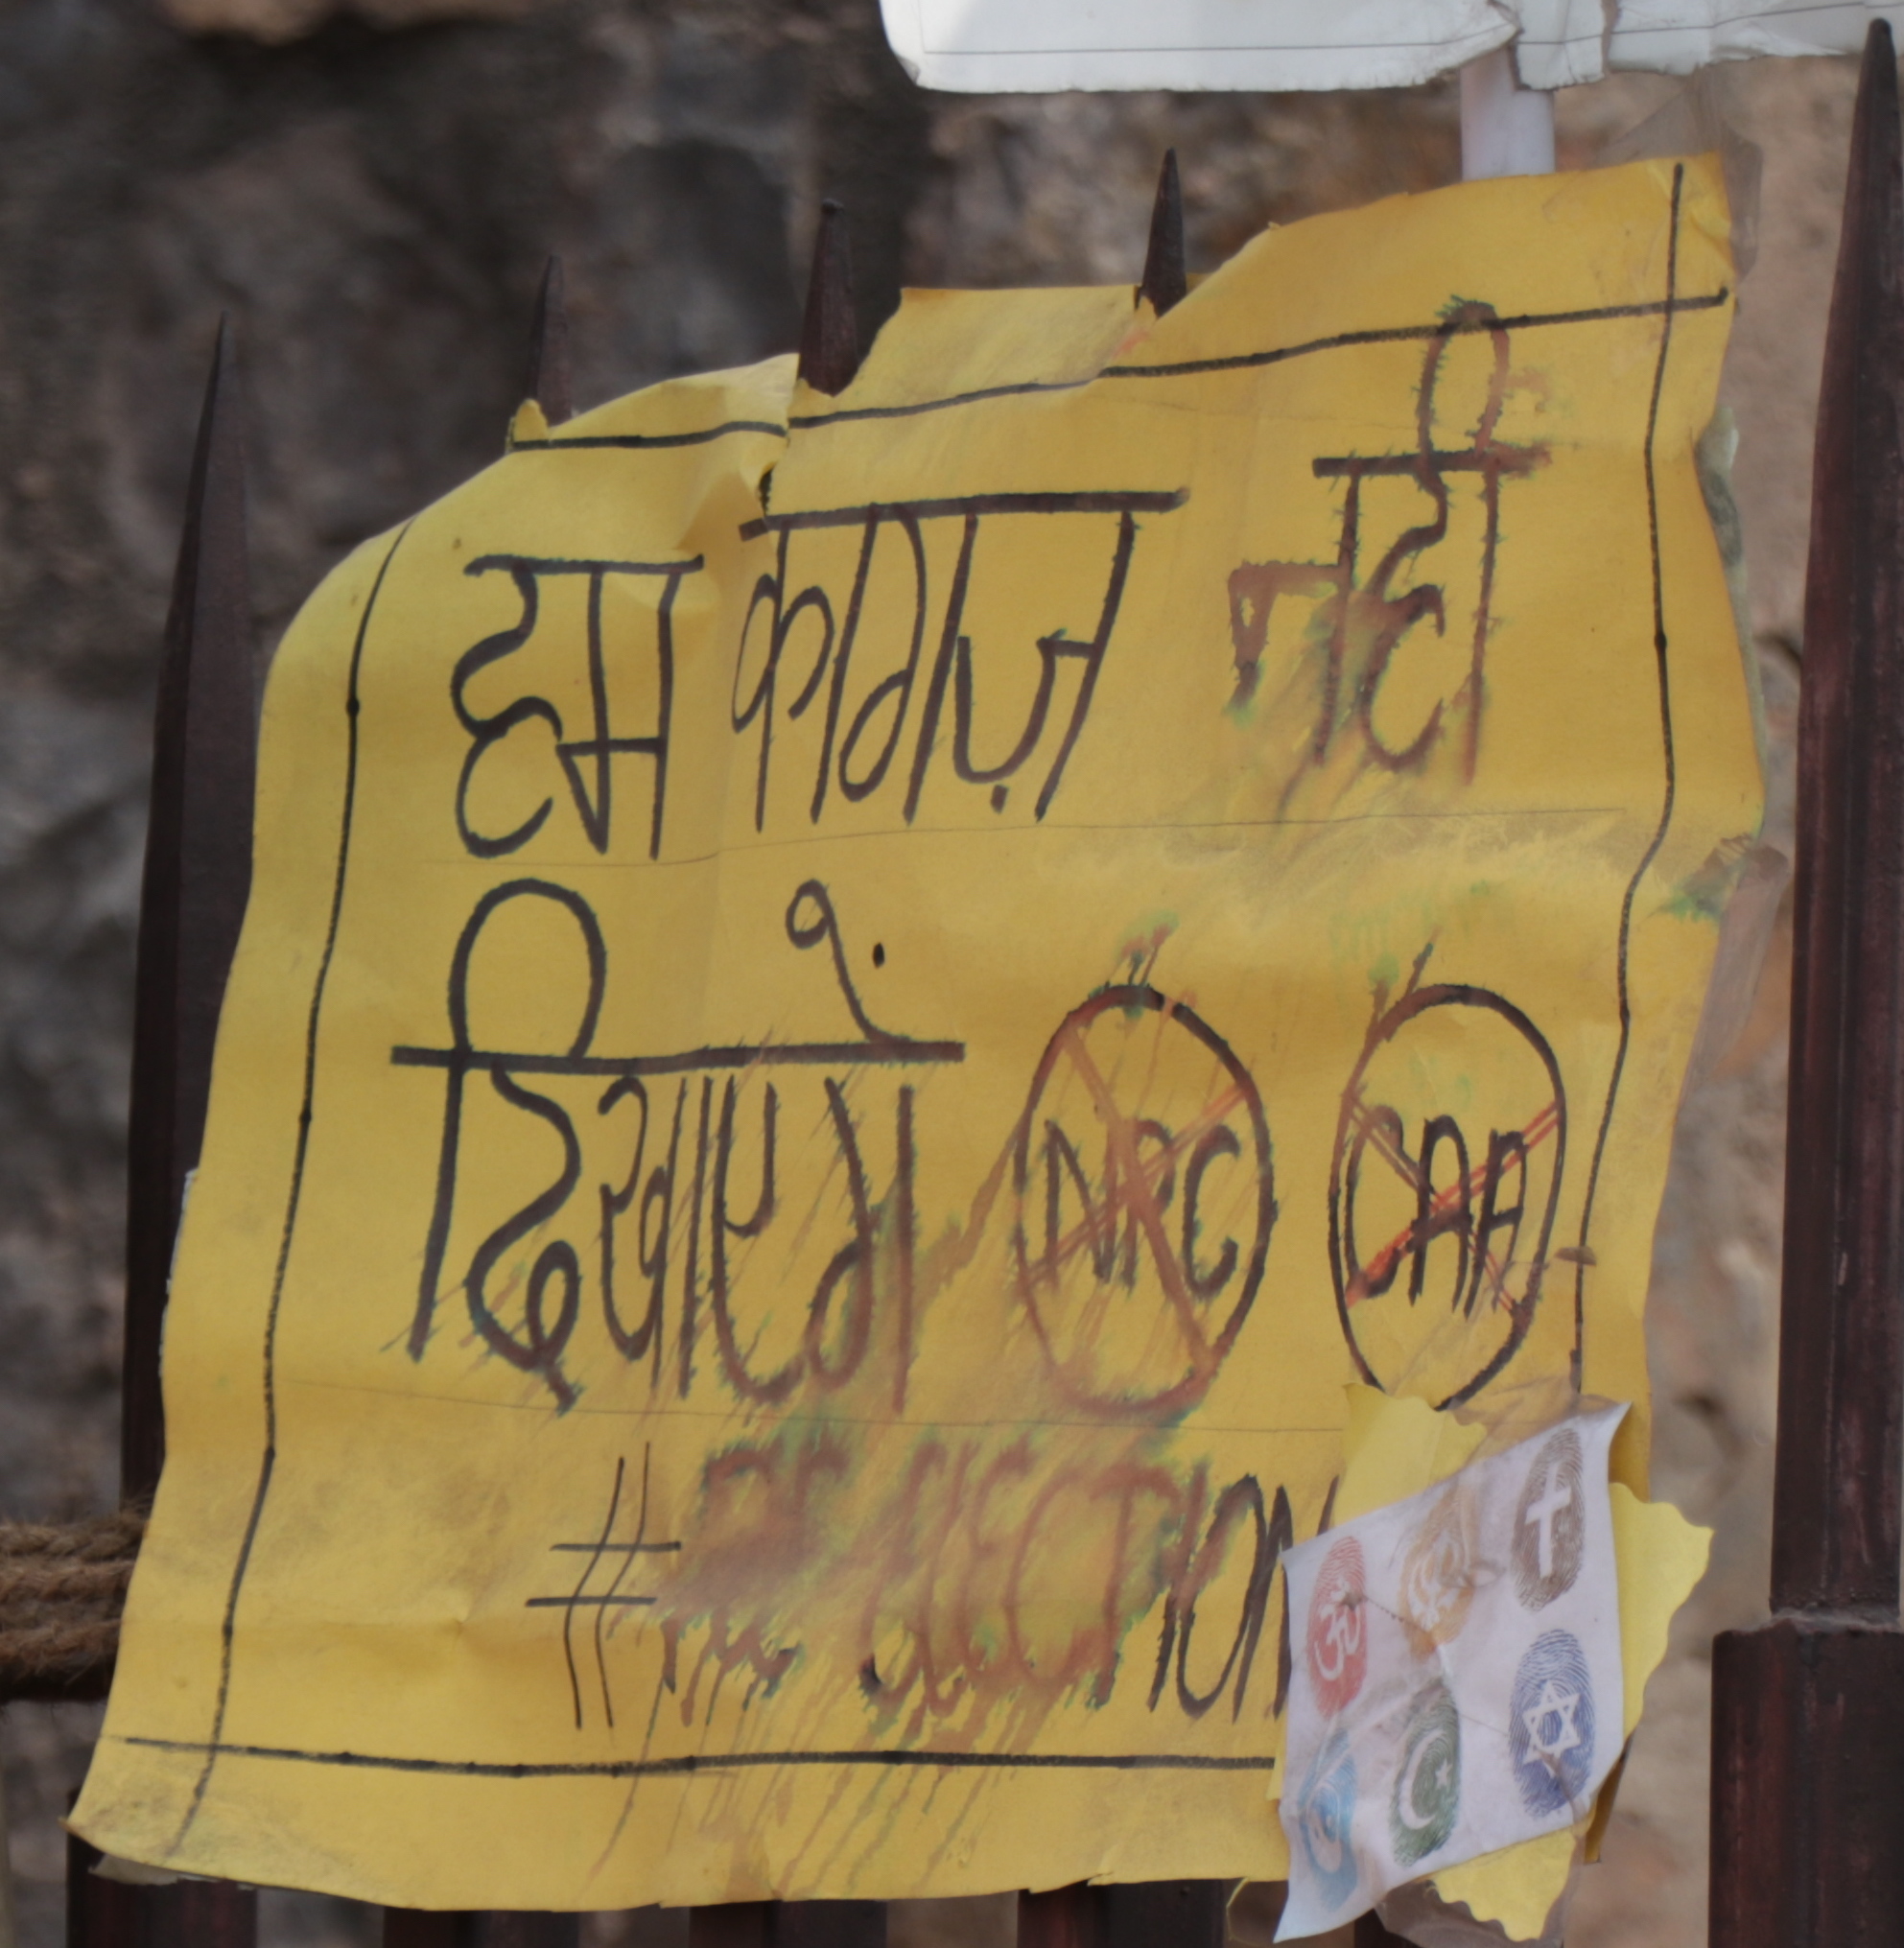 हम कागज़ नही
दिखाएगें NRC CAA
#RE ELECTION
ॐ